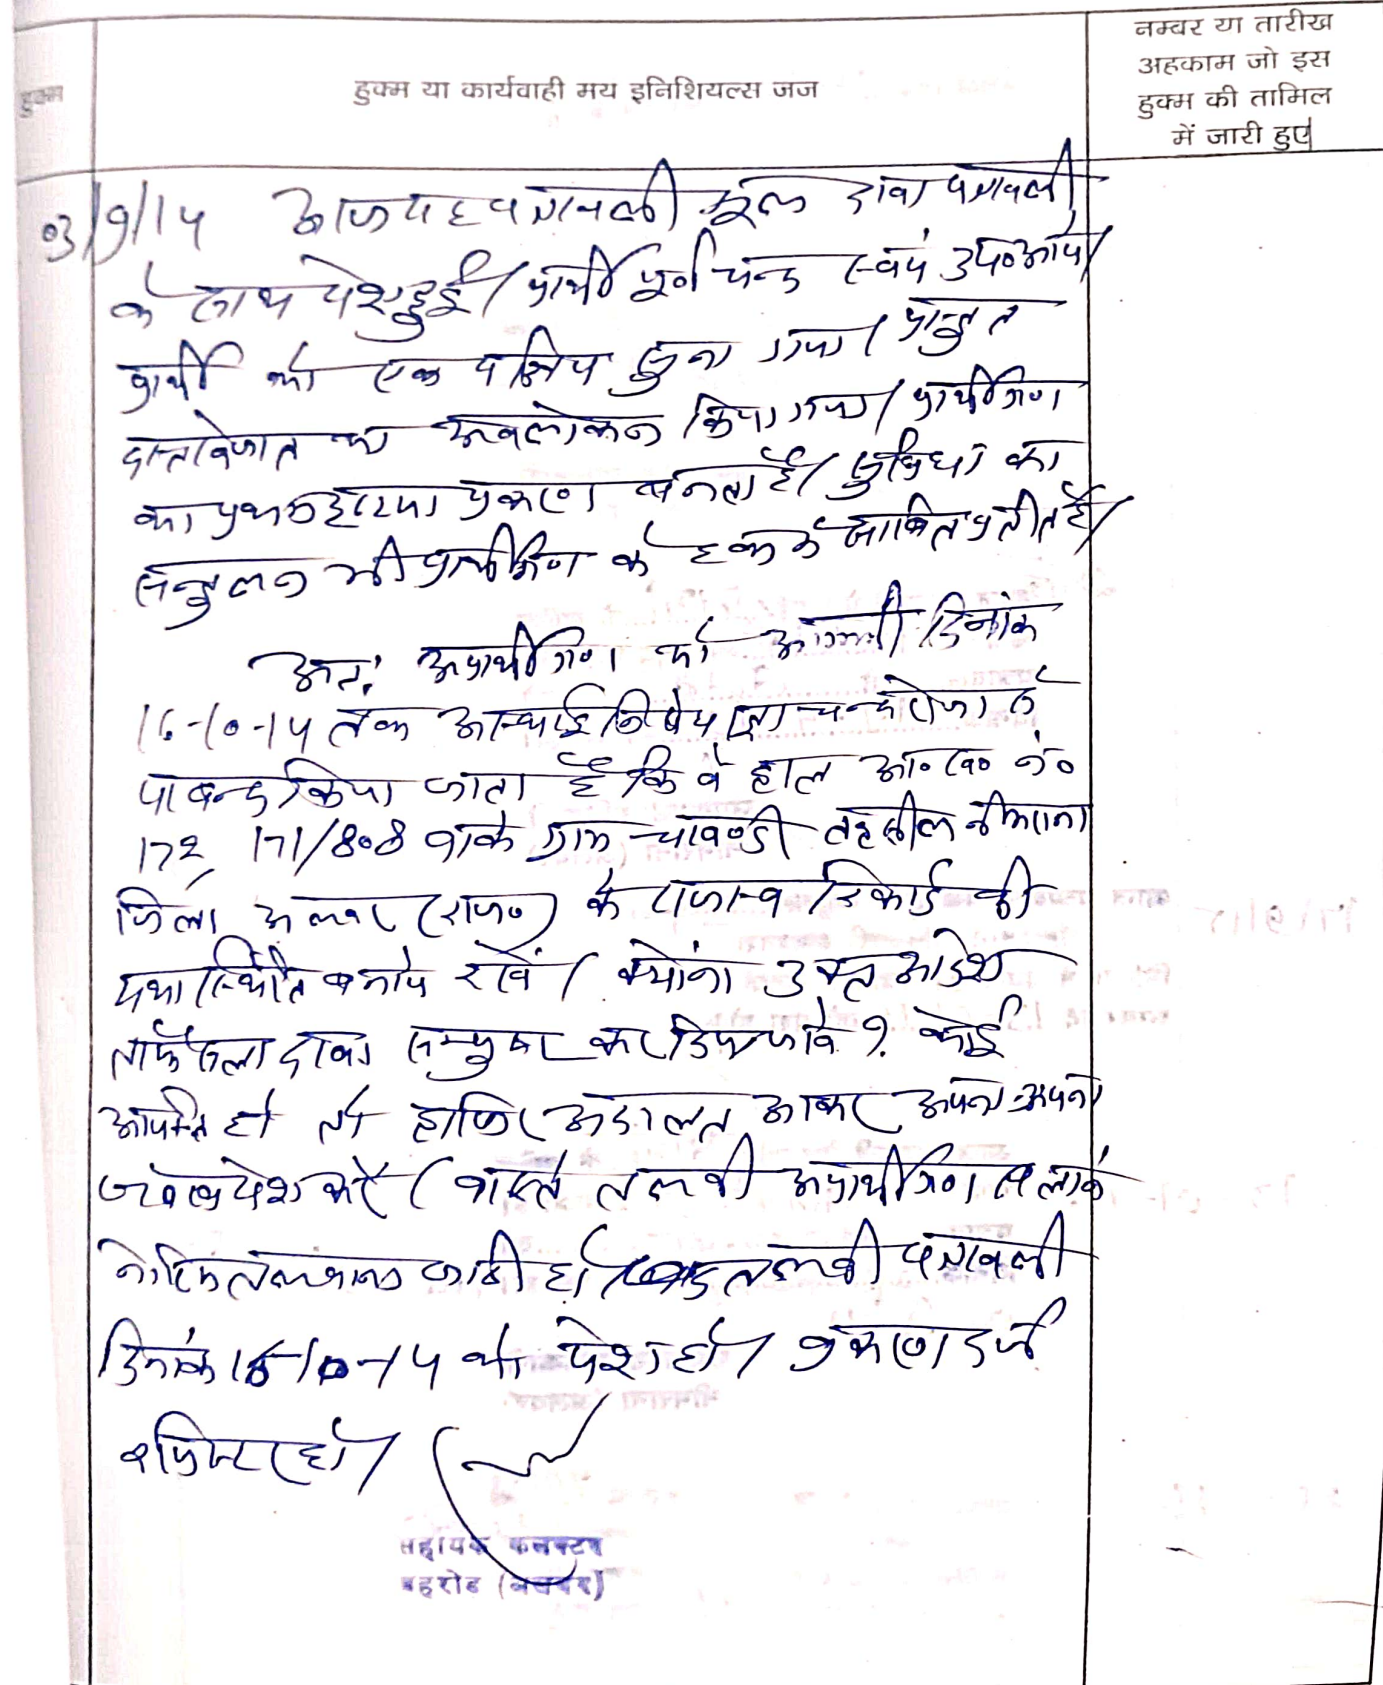 नम्बर या तारीख
अहकाम जो इस
हुक्म की तामिल
में जारी हुए
हुक्म
हुक्म या कार्यवाही मय इनिशियल्स जज
03/9/14 आज यह पत्रावली मूल दावा पत्रावली
के साथ पेश हुई। प्रार्थी पूर्ण चन्द स्वयं उप० आये।
प्रार्थी को एक पक्षिय सुना गया। प्रस्तुत
दस्तावेजात का अवलोकन किया गया। प्रार्थीगण
का प्रथम दृष्टया प्रकरण बनता है। सुविधा का
सन्तुलन भी प्रार्थीगण के हक में साबित प्रतीत है।
अतः अप्रार्थीगण को आगामी दिनांक
16-10-14 तक अस्थाई निषेधाज्ञा चन्दरोजा से
पाबन्द किया जाता है कि वे हाल आ० ख० नं०
172, 171/808 वाके ग्राम चावण्डी तहसील नीमराना
जिला अलवर (राज०) के राजस्व रिकार्ड की
यथास्थिति बनाये रखें। क्यों ना उक्त आदेश
ताफैसला दावा कर दिया जावे? कोई
आपत्ति हो तो हाजिर अदालत आकर अपना-अपना
पेश करें। वास्ते तलबी अप्रार्थीगण
नोटिस तलबाना जारी हो। बाद तलबी पत्रावली
दिनांक 16-10-14 को पेश हो। प्रकरण दर्ज
रजिस्टर हो।
सहायक कलक्टर
बहरोड (अलवर)